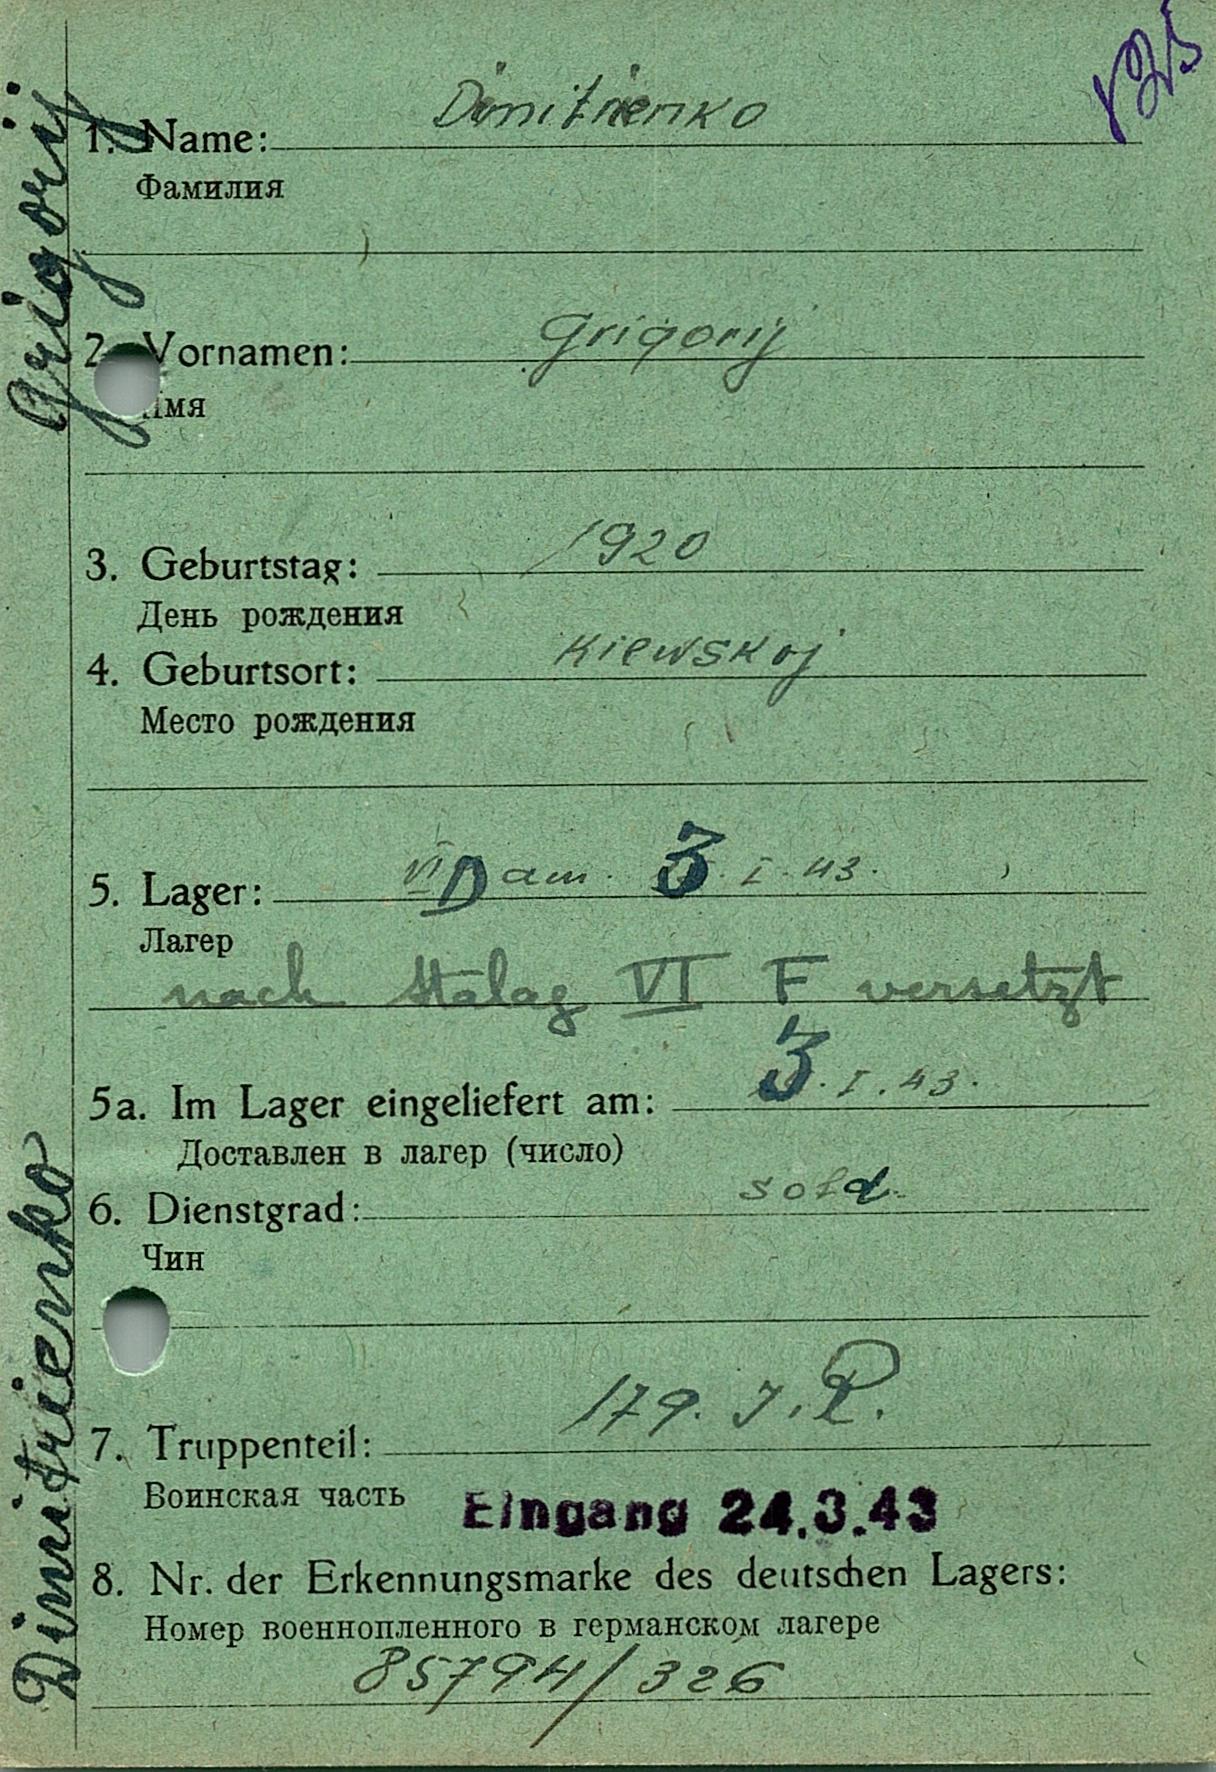 1. Name: Dimitrienko
Фамилия
2. Vornamen: Grigorij
Имя
3. Geburtstag: 1920
День рождения
4. Geburtsort: Kiewskoj
Место рождения
5. Lager: VI D am 3. I. 43.
Лагерь
nach Stalag VI F versetzt
5a. Im Lager eingeliefert am: 3. I. 43.
Доставлен в лагер (число)
6. Dienstgrad: sold.
Чин
7. Truppenteil: 179. J.R.
Воинская часть
Eingang 24.3.43
8. Nr. der Erkennungsmarke des deutschen Lagers:
Номер военнопленного в германском лагере
85794/326
Dimitrienko Grigorij